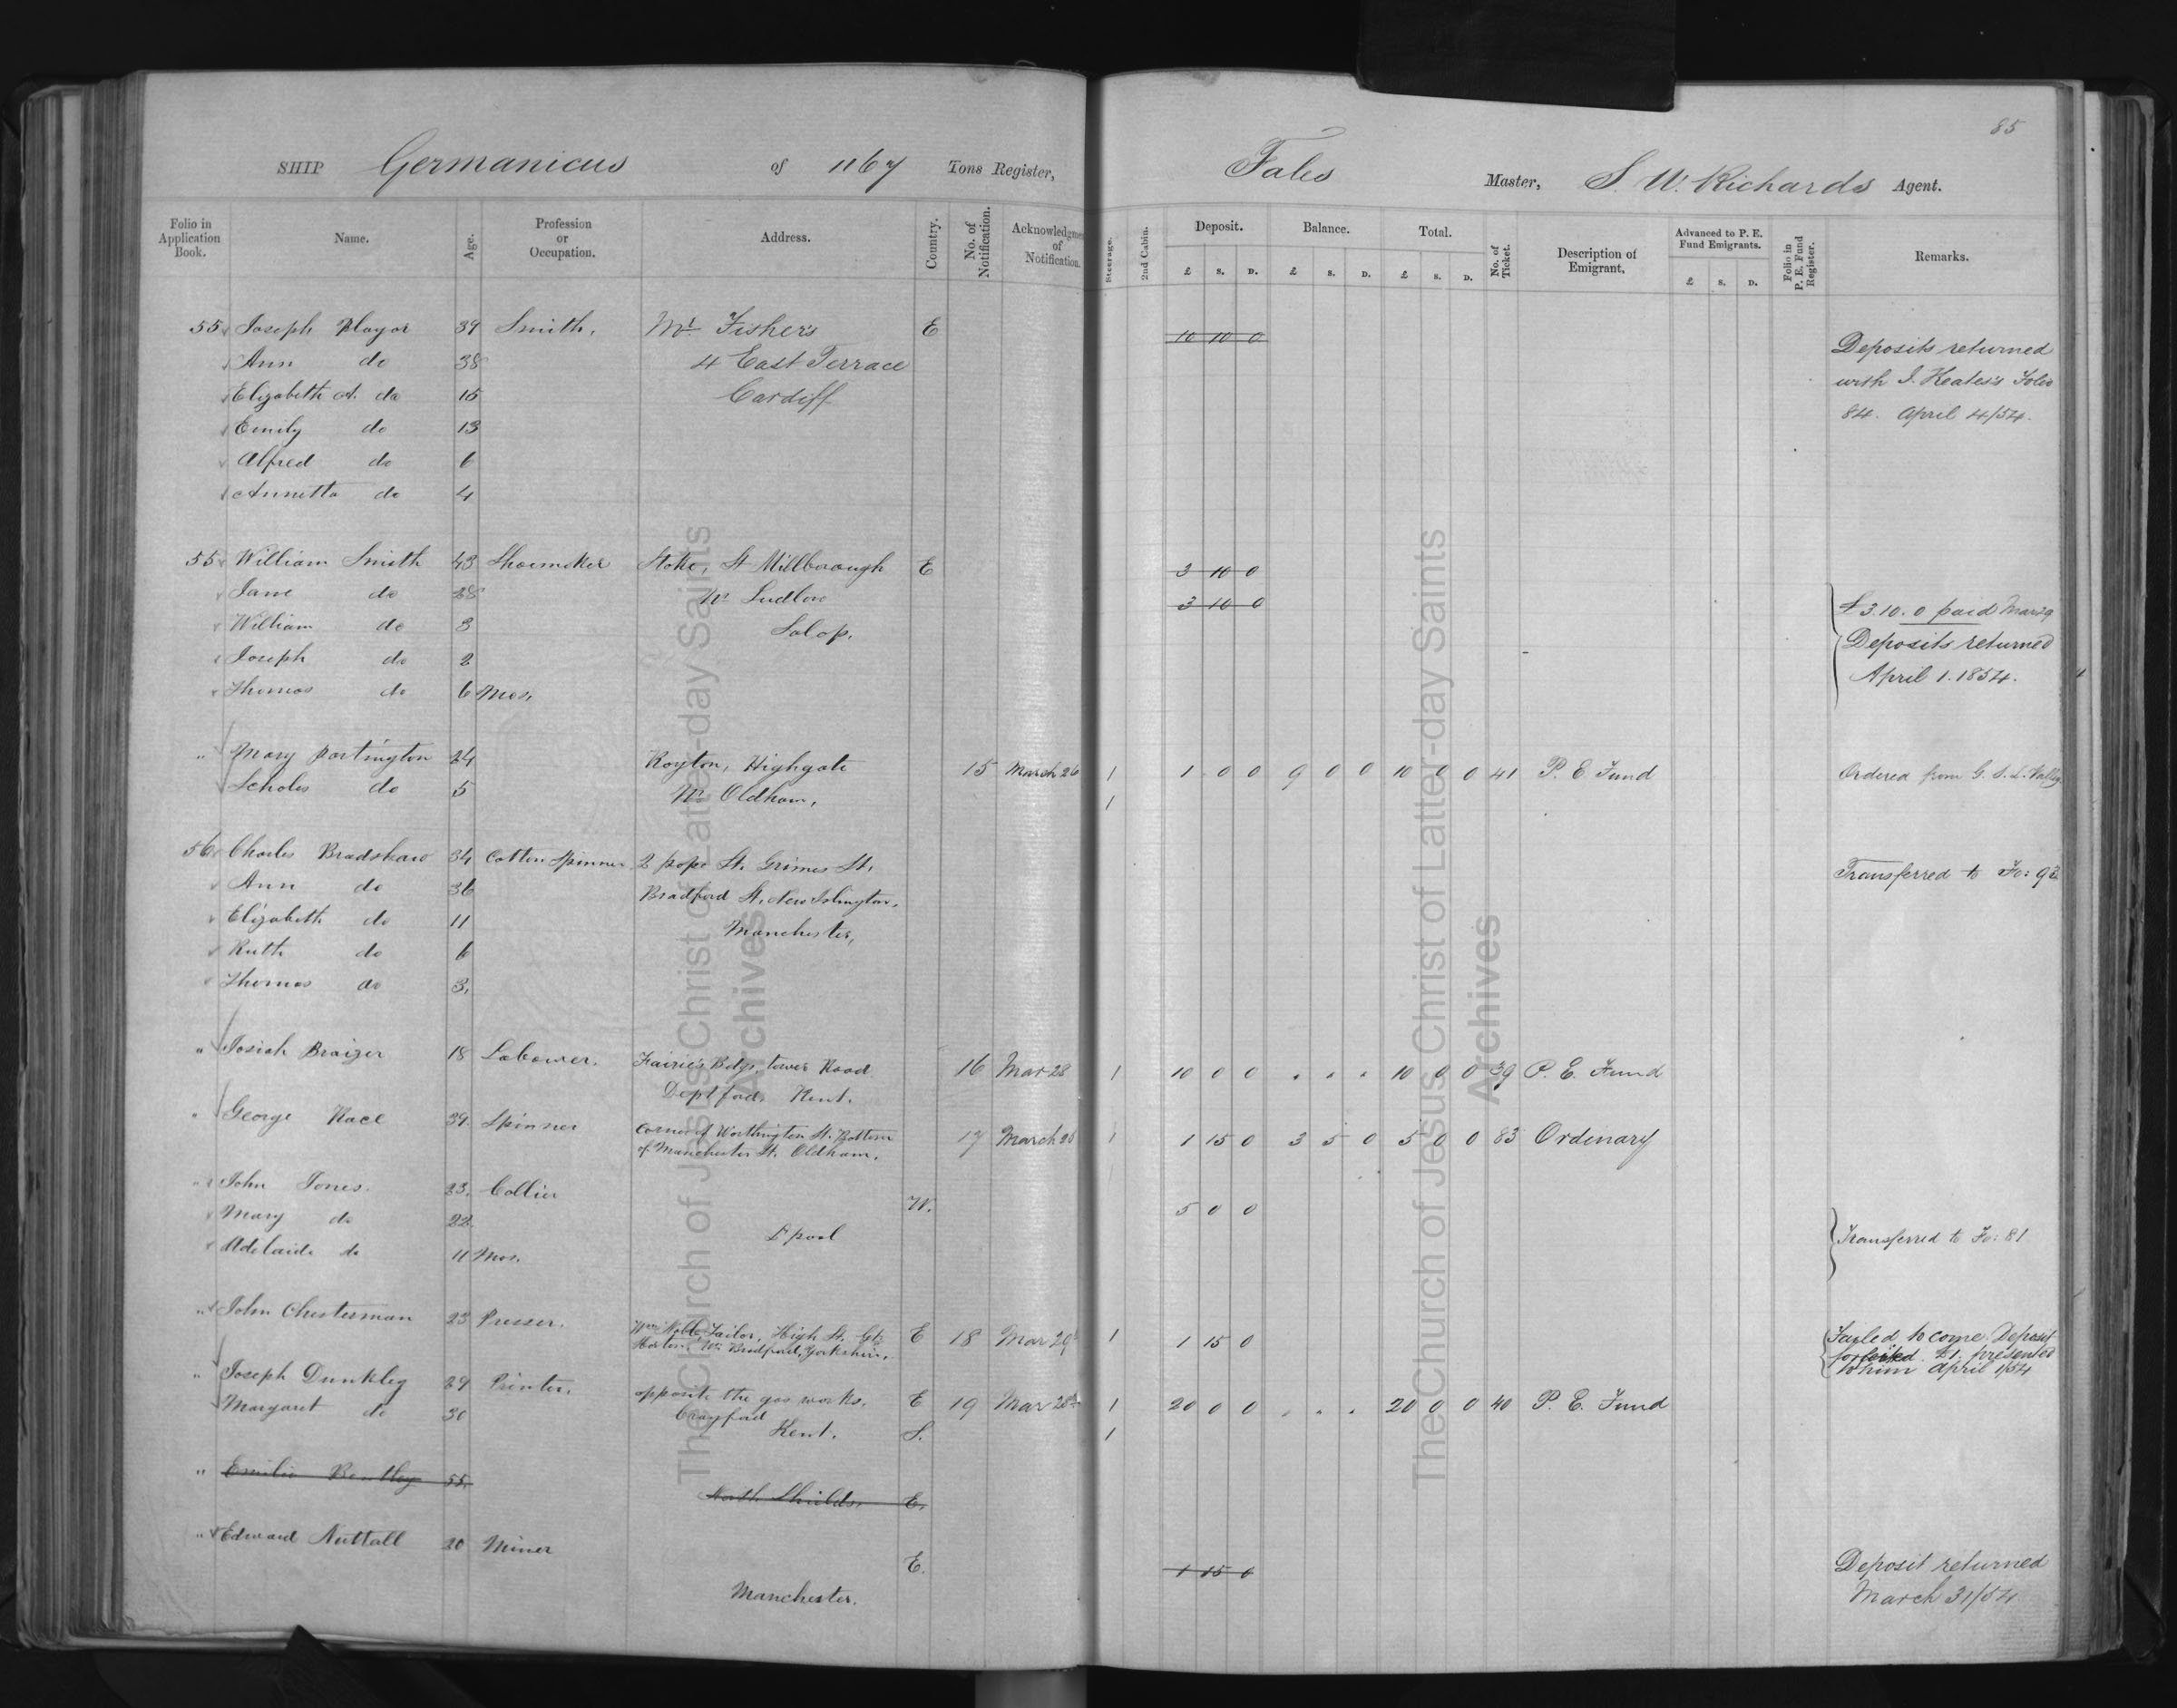 85
SHIP Germanicus of 1167 Tons Register, Fales Master, S. W. Richards Agent.
Folio in Application Book. Name. Age. Profession or Occupation. Address. Country. No. of Notification. Acknowledgme of Notification. Steerage. 2nd Cabin. Deposit. £ s. D. Balance. £ s. D. Total. £ s. D. No. of Ticket. Description of Emigrant. Advanced to P. E. Fund Emigrants. £ s. D. Folio in P. E. Fund Register. Remarks.
55 Joseph Player 39 Smith, Mr Fisher's E 10 10 0 Deposits returned
Ann do 38 4 East Terrace with J. Heates's Folio
Elizabeth A. do 15 Cardiff 84. April 4/54.
Emily do 13
Alfred do 6
Annetta do 4
55 William Smith 43 Shoemaker Stoke, St Millborough E 3 10 0
Jane do 28 Nr Ludlow 3 10 0 £3.10.0 paid Mar 29
William do 3 Salop. Deposits returned
Joseph do 2 April 1. 1854.
Thomas do 6 Mos,
" Mary Partington 24 Royton, Highgate 15 March 26 1 1 0 0 9 0 0 10 0 0 41 P. E Fund Ordered from G. S. L. Valley
Scholes do 5 Nr Oldham, 1
56 Charles Bradshaw 34 Cotton Spinner 2 pope St. Grimes St. Transferred to Fo: 93
Ann do 36 Bradford St. New Islington,
Elizabeth do 11 Manchester,
Ruth do 6
Thomas do 3,
" Josiah Braizer 18 Labourer. Fairie's Bdgs, tower Road 16 Mar 28 1 10 0 0 . . . 10 0 0 39 P. E. Fund
Deptford, Kent.
" George Race 39 Spinner Corner of Worthington St. Bottom 17 March 28 1 1 15 0 3 5 0 5 0 0 83 Ordinary
of Manchester St. Oldham.
" John Jones. 23. Collier W. 5 0 0
Mary do 22 L'pool Transferred to Fo: 81
Adelaide do 11 Mos.
" John Chesterman 23 Presser. Wm Noble Tailor, High St. Gt. E 18 Mar 29 1 1 15 0 Failed to come. Deposit
Horton, Nr Bradford, Yorkshire. forfeited. £1. presented
to him April 1/54
" Joseph Dunkley 29 Printer. opposite the gas works. E 19 Mar 28th 1 20 0 0 . . . 20 0 0 40 P. E. Fund
Margaret do 30 Crayford Kent. S. 1
" Emilie Bentley 55.
North Shields. E.
" Edward Nuttall 20 Miner E. 1 15 0 Deposit returned
Manchester. March 31/54
The Church of Jesus Christ of Latter-day Saints
Archives
The Church of Jesus Christ of Latter-day Saints
Archives